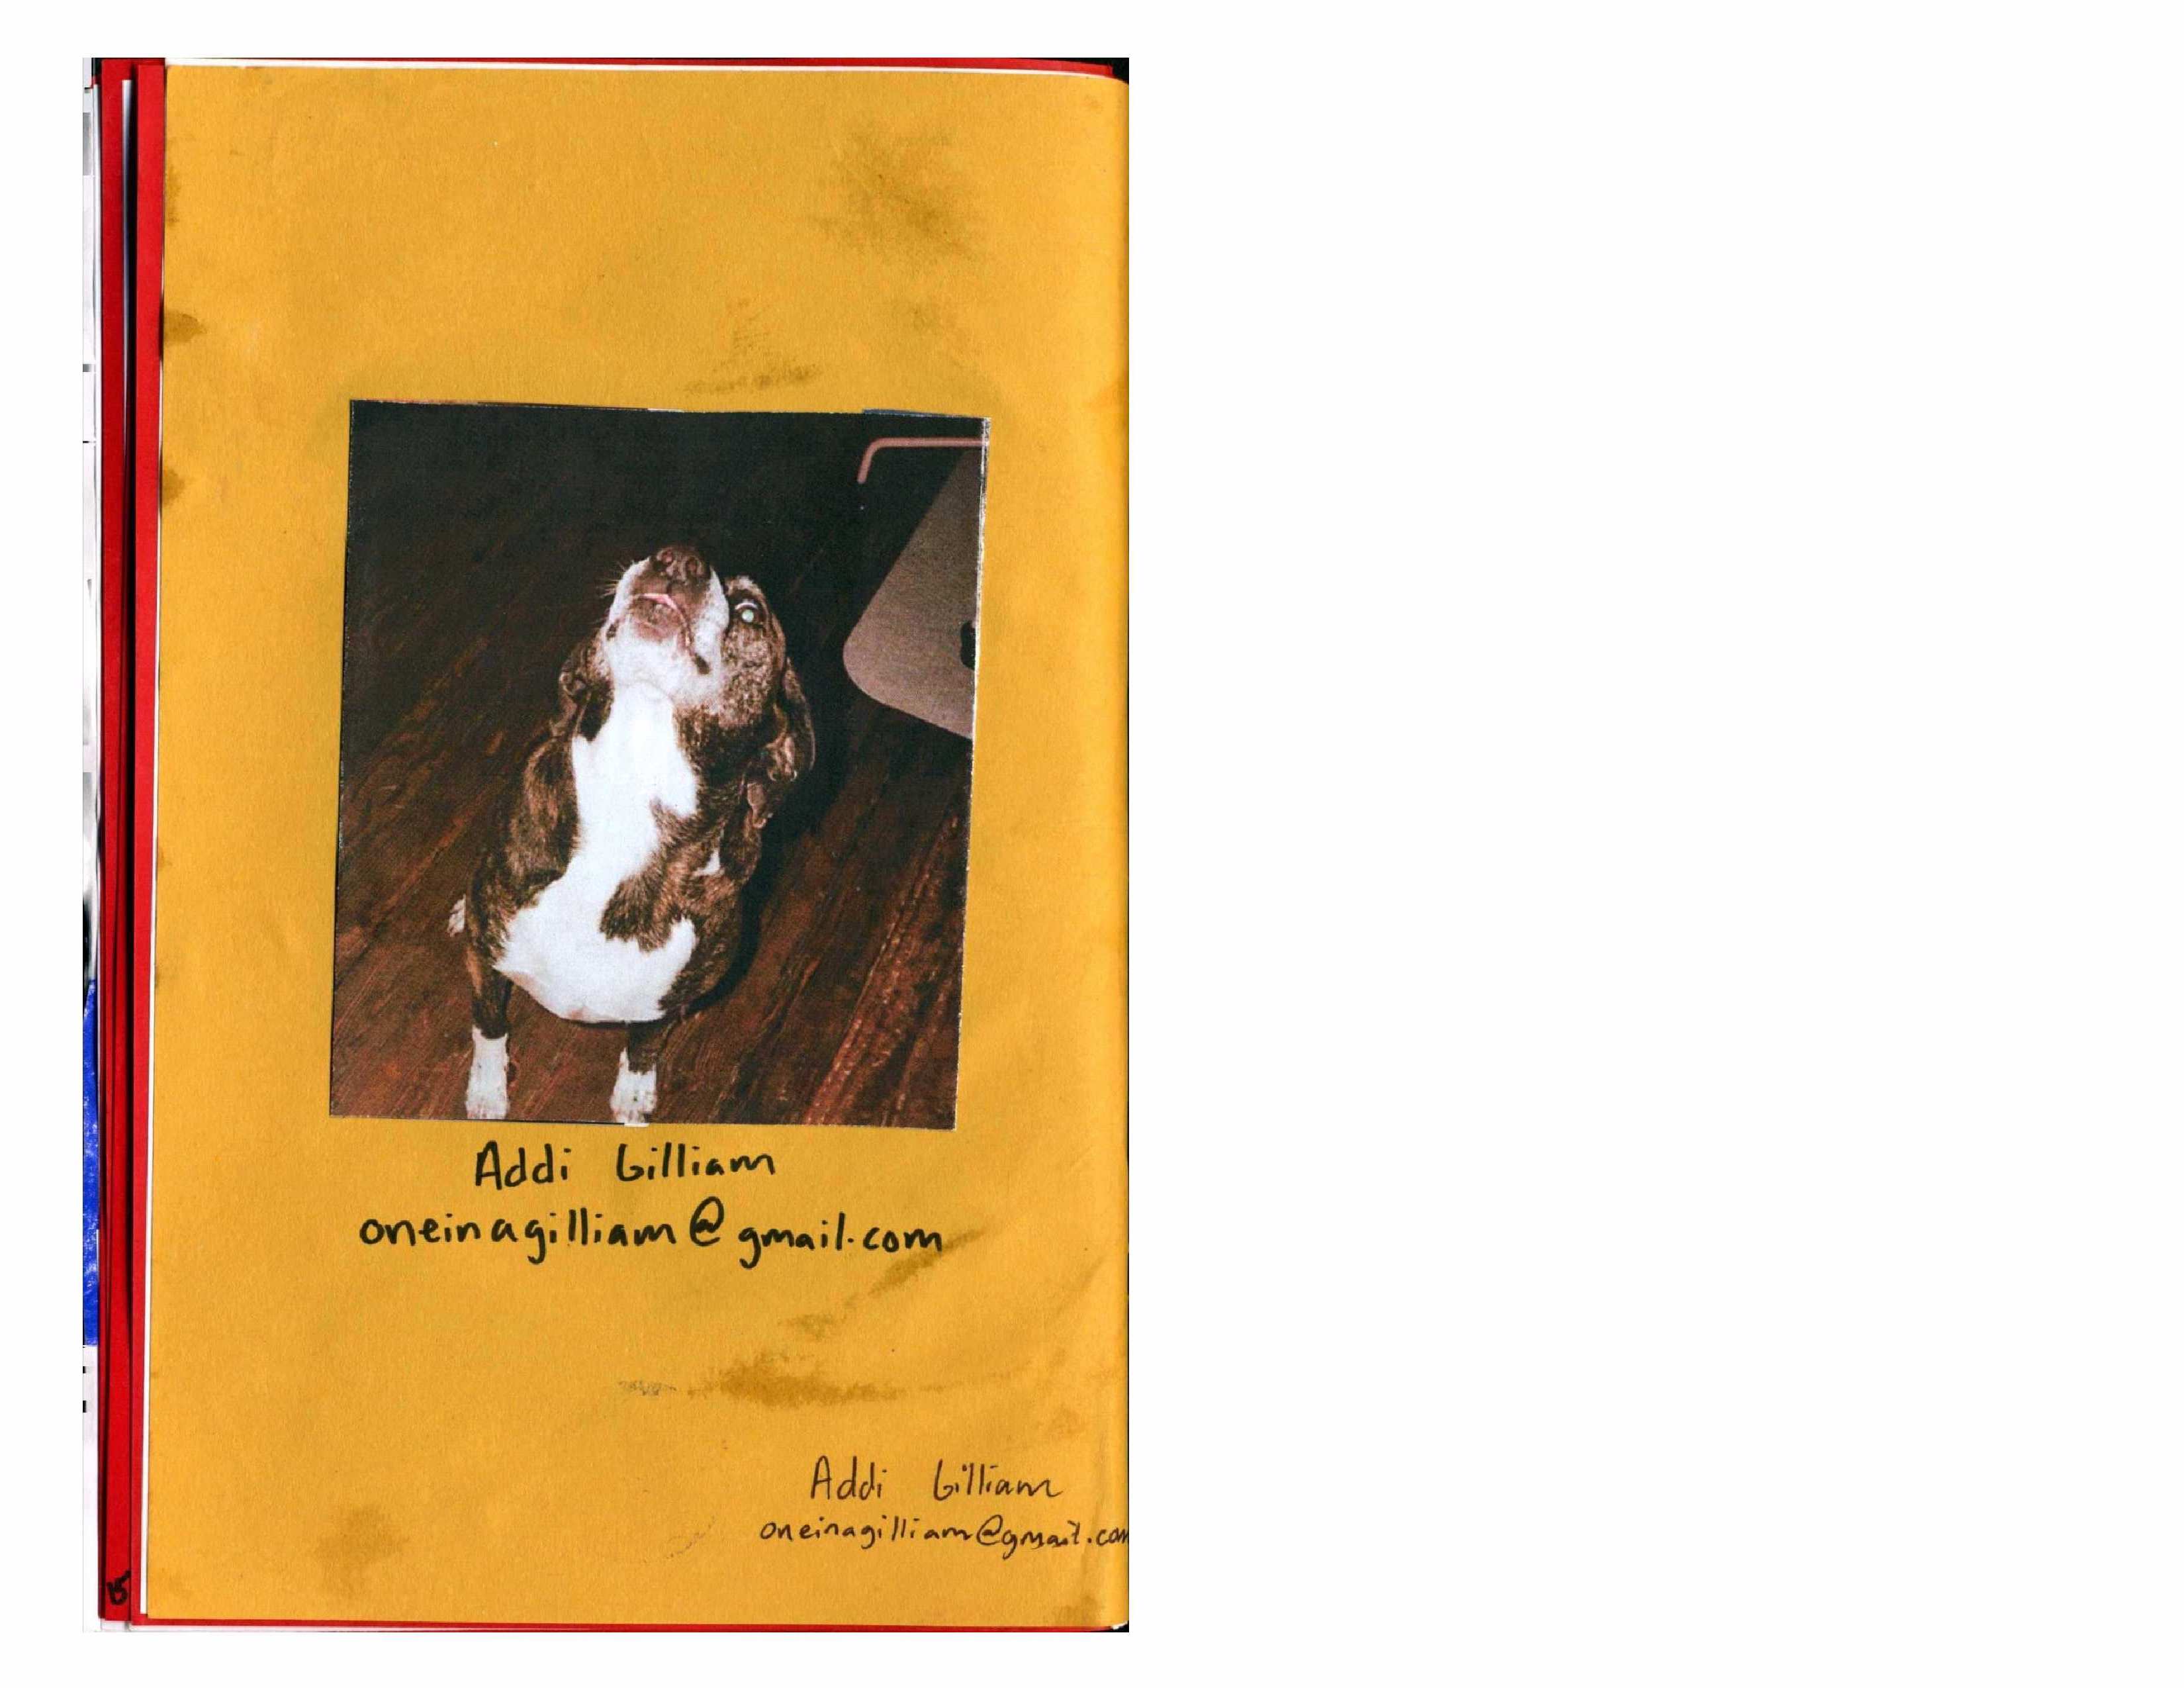 Addi Gilliam
oneinagilliam@gmail.com
Addi Gilliam
oneinagilliam@gmail.com
15